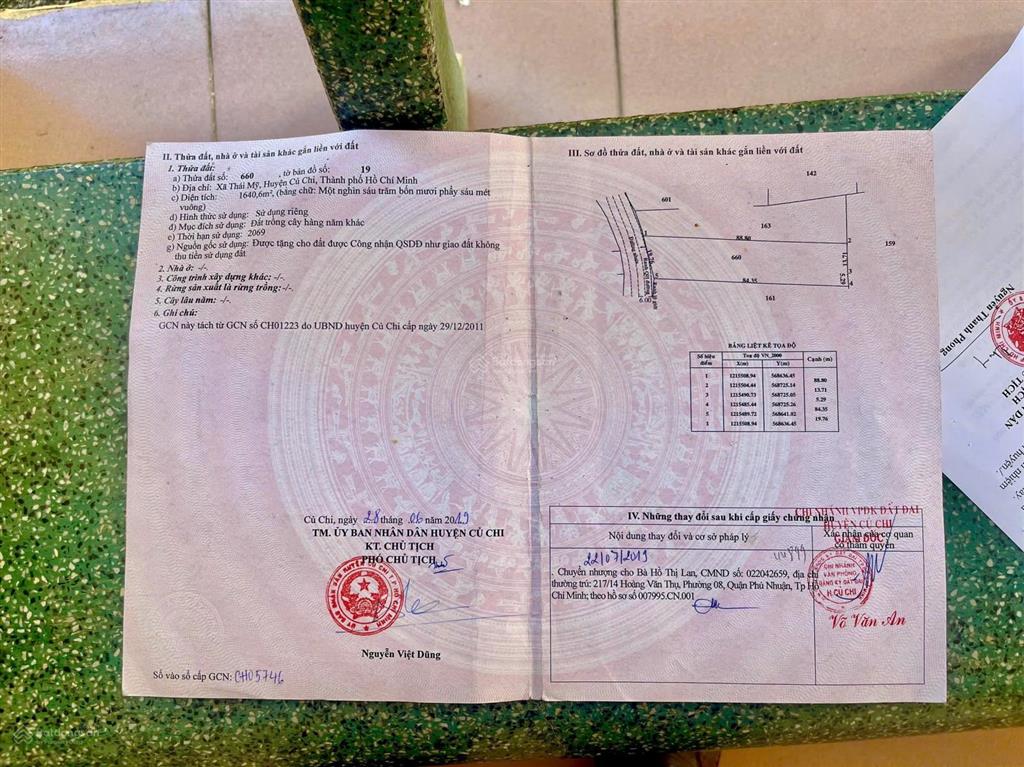 II. Thửa đất, nhà ở và tài sản khác gắn liền với đất
1. Thửa đất:
a) Thửa đất số: 660 , tờ bản đồ số: 19
b) Địa chỉ: Xã Thái Mỹ, Huyện Củ Chi, Thành phố Hồ Chí Minh
c) Diện tích: 1640,6m², (bằng chữ: Một nghìn sáu trăm bốn mươi phẩy sáu mét
vuông)
d) Hình thức sử dụng: Sử dụng riêng
đ) Mục đích sử dụng: Đất trồng cây hàng năm khác
e) Thời hạn sử dụng: 2069
g) Nguồn gốc sử dụng: Được tặng cho đất được Công nhận QSDĐ như giao đất không
thu tiền sử dụng đất
2. Nhà ở: -/-.
3. Công trình xây dựng khác: -/-.
4. Rừng sản xuất là rừng trồng: -/-.
5. Cây lâu năm: -/-.
6. Ghi chú:
GCN này tách từ GCN số CH01223 do UBND huyện Củ Chi cấp ngày 29/12/2011
Củ Chi, ngày 28 tháng 06 năm 2019
TM. ỦY BAN NHÂN DÂN HUYỆN CỦ CHI
KT. CHỦ TỊCH
PHÓ CHỦ TỊCH
Nguyễn Việt Dũng
Số vào sổ cấp GCN: CH05746
III. Sơ đồ thửa đất, nhà ở và tài sản khác gắn liền với đất
142
601
163
159
88.80
1
2
660
19.76
13.71
3
5.29
84.35
4
6.00
161
BẢNG LIỆT KÊ TỌA ĐỘ
Số hiệu điểm Toạ độ VN_2000 Cạnh (m)
X(m) Y(m)
1 1215508.94 568636.45
88.80
2 1215504.44 568725.14
13.71
3 1215490.73 568725.05
5.29
4 1215485.44 568725.26
84.35
5 1215489.72 568641.02
19.76
1 1215508.94 568636.45
IV. Những thay đổi sau khi cấp giấy chứng nhận
Nội dung thay đổi và cơ sở pháp lý
Xác nhận của cơ quan
có thẩm quyền
CHI NHÁNH VPĐK ĐẤT ĐAI
HUYỆN CỦ CHI
GIÁM ĐỐC
22/07/2019
Chuyển nhượng cho Bà Hồ Thị Lan, CMND số: 022042659, địa chỉ
thường trú: 217/14 Hoàng Văn Thụ, Phường 08, Quận Phú Nhuận, Tp Hồ
Chí Minh; theo hồ sơ số 007995.CN.001
CHI NHÁNH
VĂN PHÒNG
ĐĂNG KÝ ĐẤT ĐAI
H. CỦ CHI
Võ Văn An
Nguyễn Thanh Phong
Batdongsan